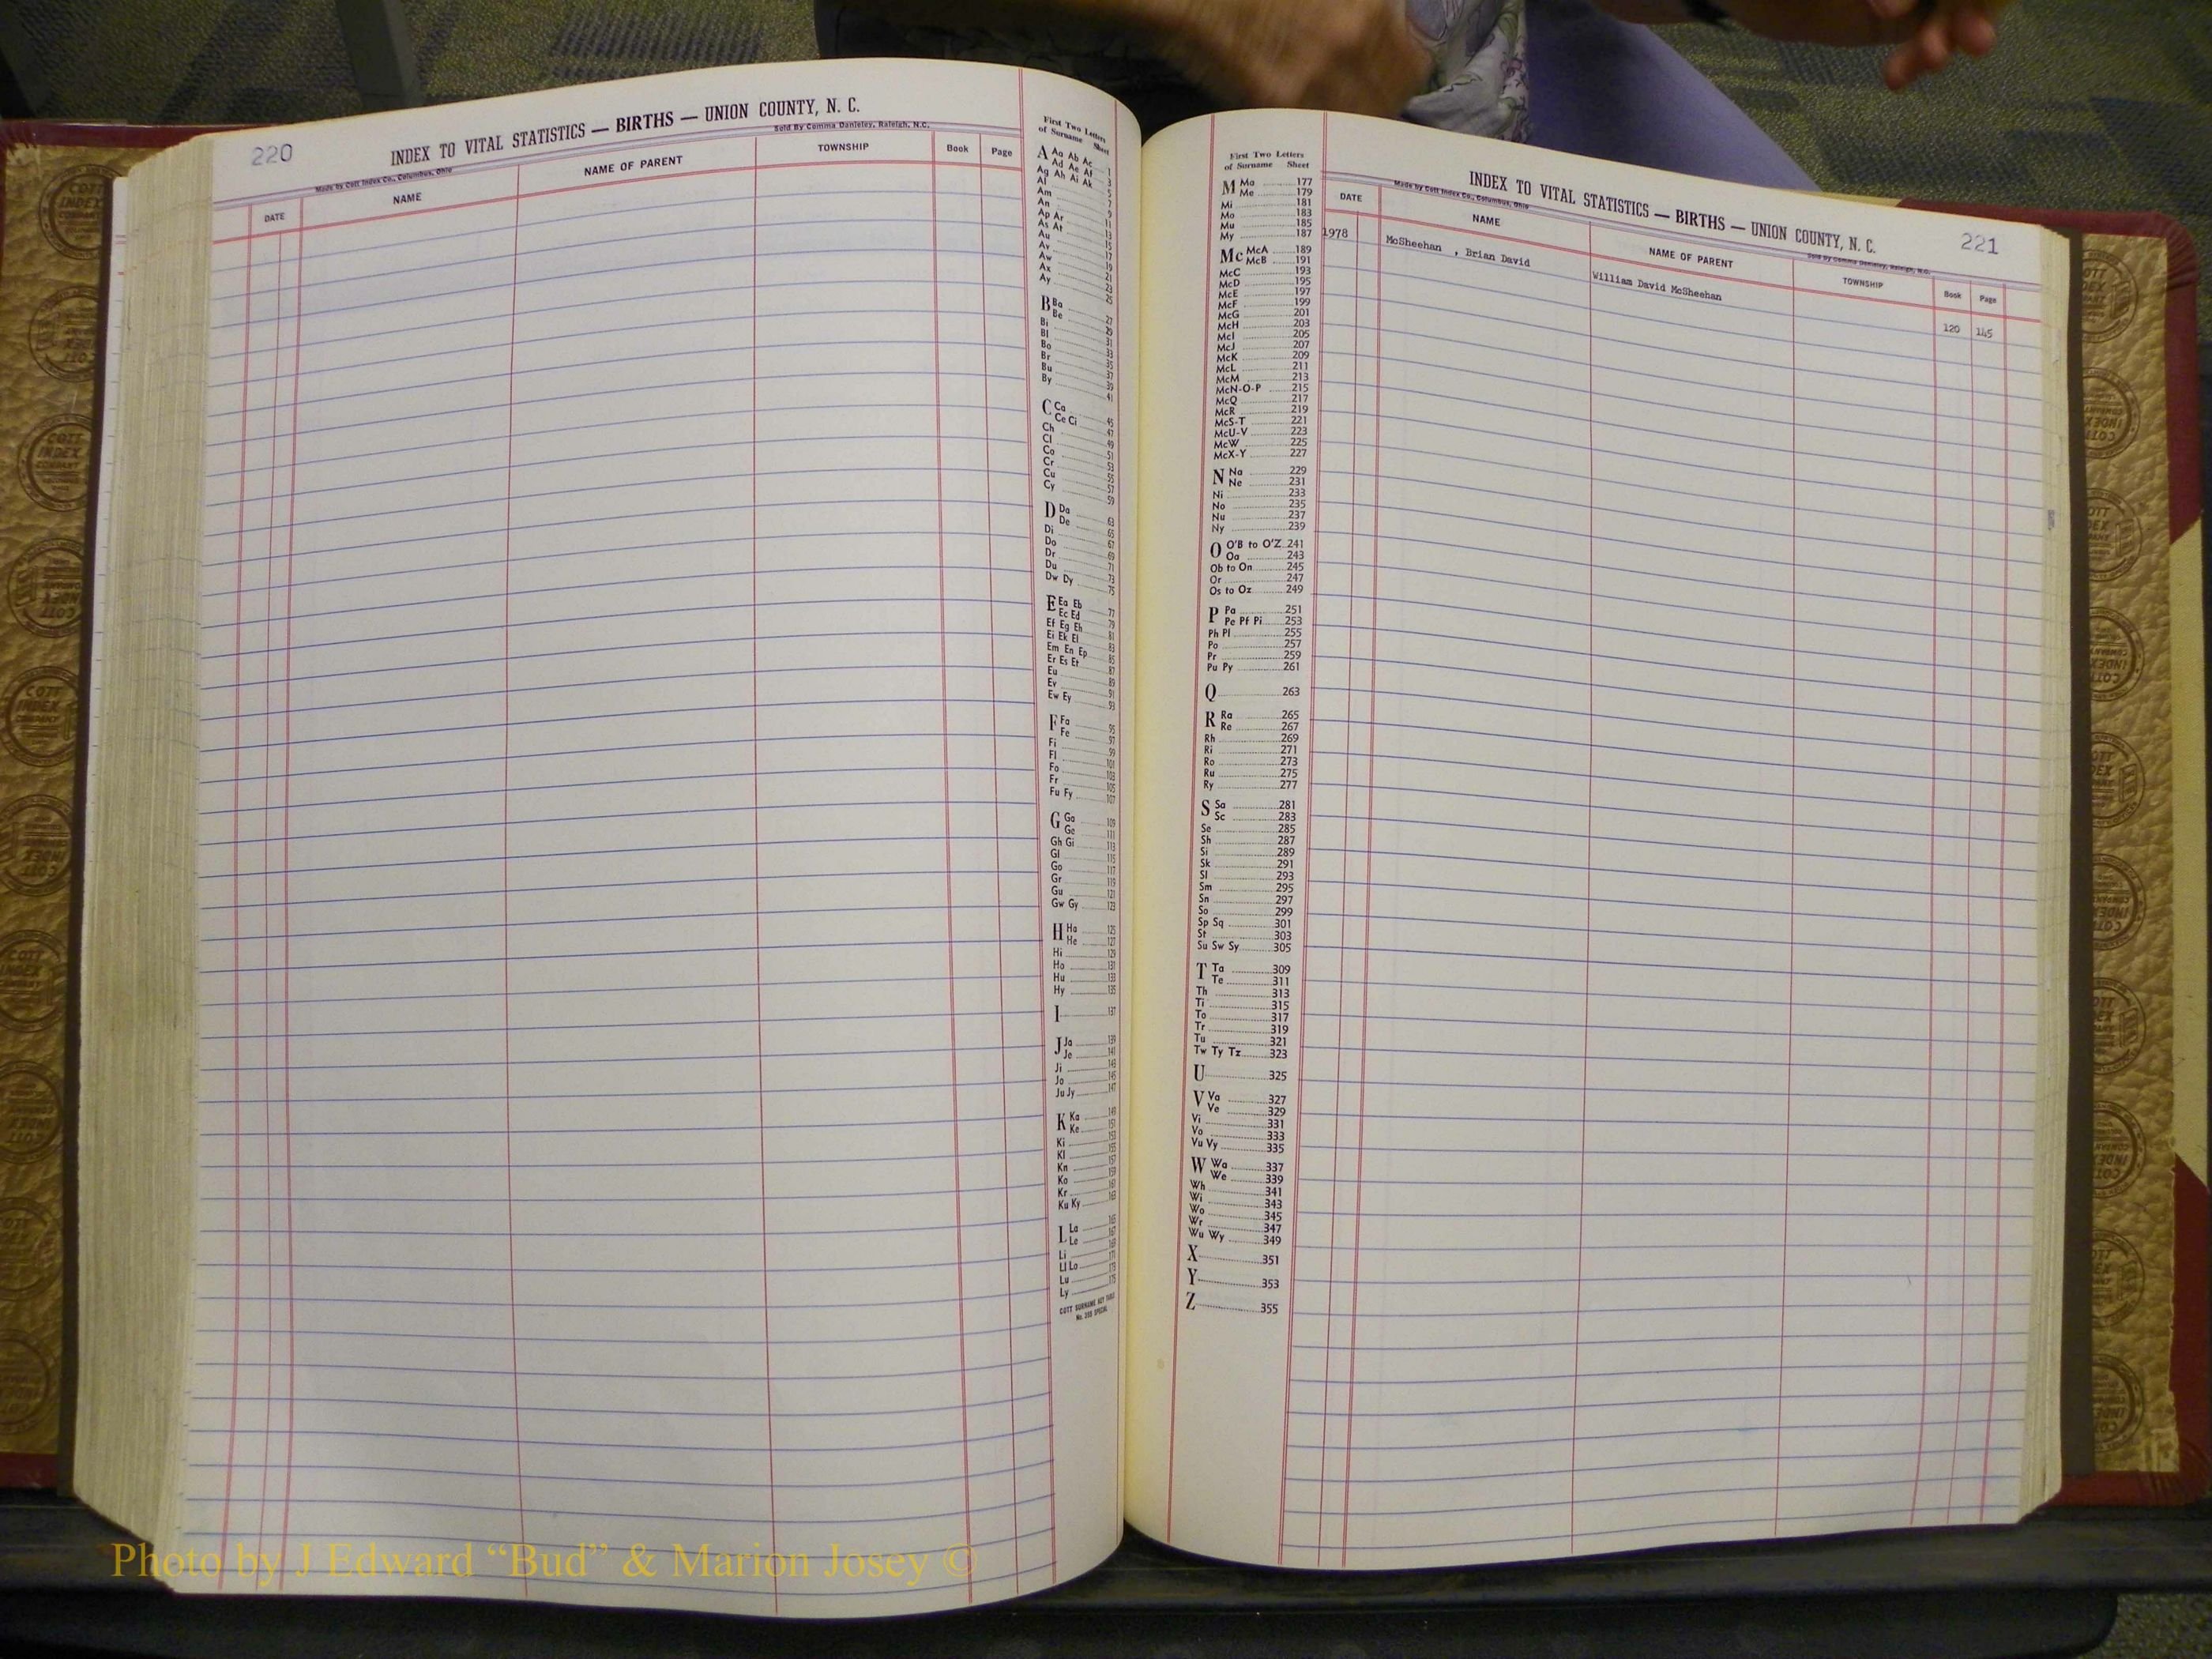 220
INDEX TO VITAL STATISTICS — BIRTHS — UNION COUNTY, N. C.
Made by Cott Index Co., Columbus, Ohio
Sold By Comma Danieley, Raleigh, N.C.
DATE NAME NAME OF PARENT TOWNSHIP Book Page
First Two Letters
of Surname Sheet
A Aa Ab Ac 1
Ad Ae Af 3
Ag Ah Ai Ak 5
Al 7
Am 9
An 11
Ap Ar 13
As At 15
Au 17
Av 19
Aw 21
Ax 23
Ay 25
B Ba 27
Be 29
Bi 31
Bl 33
Bo 35
Br 37
Bu 39
By 41
C Ca 45
Ce Ci 47
Ch 49
Cl 51
Co 53
Cr 55
Cu 57
Cy 59
D Da 63
De 65
Di 67
Do 69
Dr 71
Du 73
Dw Dy 75
E Ea Eb 77
Ec Ed 79
Ef Eg Eh 81
Ei Ek El 83
Em En Ep 85
Er Es Et 87
Eu 89
Ev 91
Ew Ey 93
F Fa 95
Fe 97
Fi 99
Fl 101
Fo 103
Fr 105
Fu Fy 107
G Ga 109
Ge 111
Gh Gi 113
Gl 115
Go 117
Gr 119
Gu 121
Gw Gy 123
H Ha 125
He 127
Hi 129
Ho 131
Hu 133
Hy 135
I 137
J Ja 139
Je 141
Ji 143
Jo 145
Ju Jy 147
K Ka 149
Ke 151
Ki 153
Kl 155
Kn 157
Ko 159
Kr 161
Ku Ky 163
L La 165
Le 167
Li 169
Ll Lo 171
Lu 173
Ly 175
COTT SURNAME KEY TABLE
No. 350 SPECIAL
First Two Letters
of Surname Sheet
M Ma 177
Me 179
Mi 181
Mo 183
Mu 185
My 187
Mc McA 189
McB 191
McC 193
McD 195
McE 197
McF 199
McG 201
McH 203
McI 205
McJ 207
McK 209
McL 211
McM 213
McN-O-P 215
McQ 217
McR 219
McS-T 221
McU-V 223
McW 225
McX-Y 227
N Na 229
Ne 231
Ni 233
No 235
Nu 237
Ny 239
O O'B to O'Z 241
Oa 243
Ob to On 245
Or 247
Os to Oz 249
P Pa 251
Pe Pf Pi 253
Ph Pl 255
Po 257
Pr 259
Pu Py 261
Q 263
R Ra 265
Re 267
Rh 269
Ri 271
Ro 273
Ru 275
Ry 277
S Sa 281
Sc 283
Se 285
Sh 287
Si 289
Sk 291
Sl 293
Sm 295
Sn 297
So 299
Sp Sq 301
St 303
Su Sw Sy 305
T Ta 309
Te 311
Th 313
Ti 315
To 317
Tr 319
Tu 321
Tw Ty Tz 323
U 325
V Va 327
Ve 329
Vi 331
Vo 333
Vu Vy 335
W Wa 337
We 339
Wh 341
Wi 343
Wo 345
Wr 347
Wu Wy 349
X 351
Y 353
Z 355
INDEX TO VITAL STATISTICS — BIRTHS — UNION COUNTY, N. C.
221
Made by Cott Index Co., Columbus, Ohio
Sold By Comma Danieley, Raleigh, N.C.
DATE NAME NAME OF PARENT TOWNSHIP Book Page
1978 McSheehan , Brian David William David McSheehan 120 145
Photo by J Edward “Bud” & Marion Josey ©